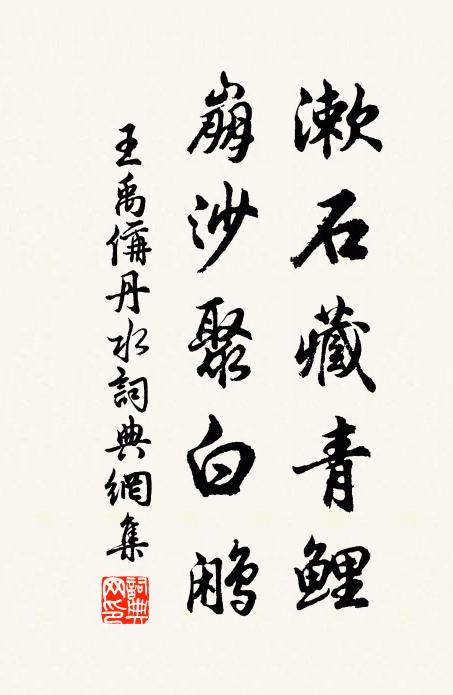 漱石藏青鯉
崩沙聚白鷳
王禹偁丹水詞典網集
詞典網印